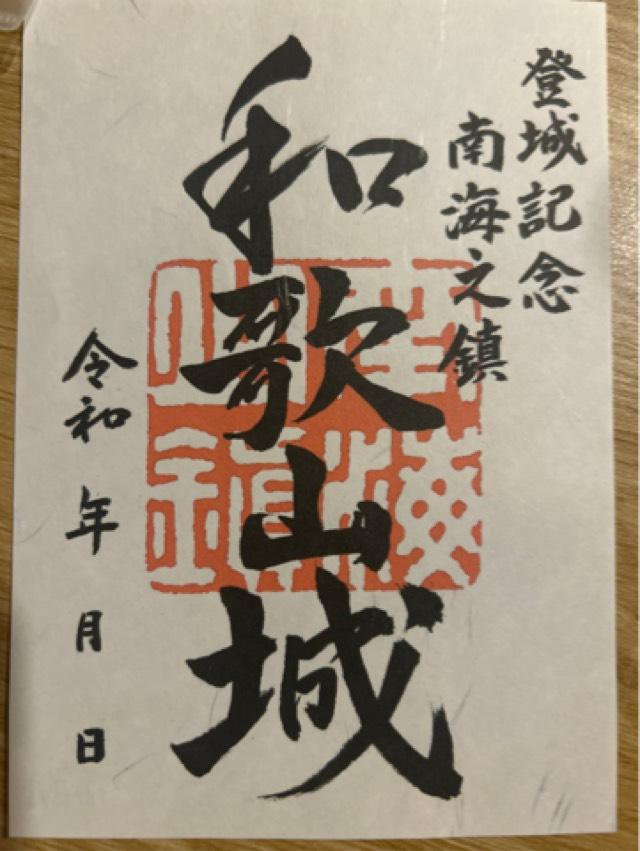 登城記念
南海之鎮
和歌山城
令和　年　月　日
南海之鎮